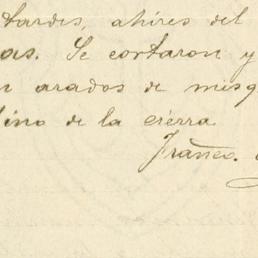 tardes, ahires del
as. Se cortaron y
n arados de misq
ino de la cierra
Franco.